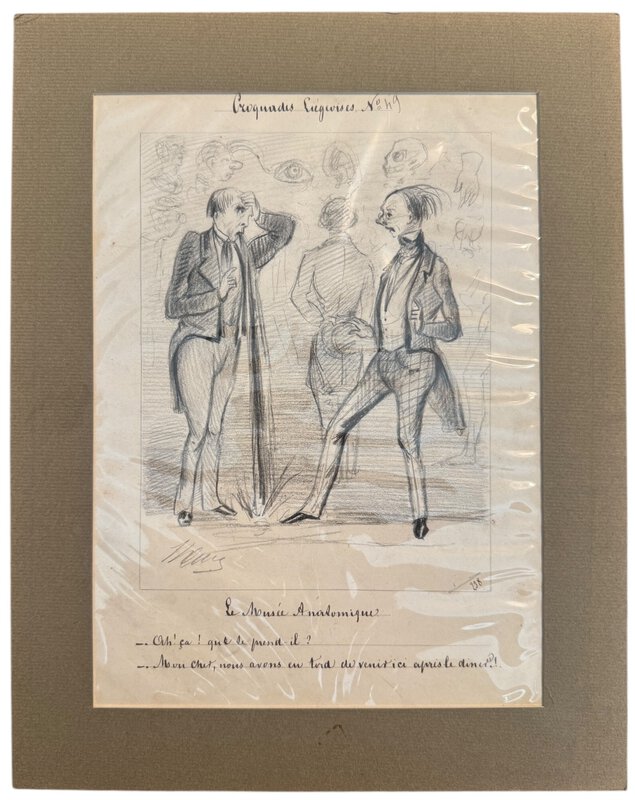 Croquades Liégeoises No 49
138
Le Musée Anatomique
— Ah! ça! que te prend il?
— Mon cher, nous avons eu tord de venir ici après le diner!